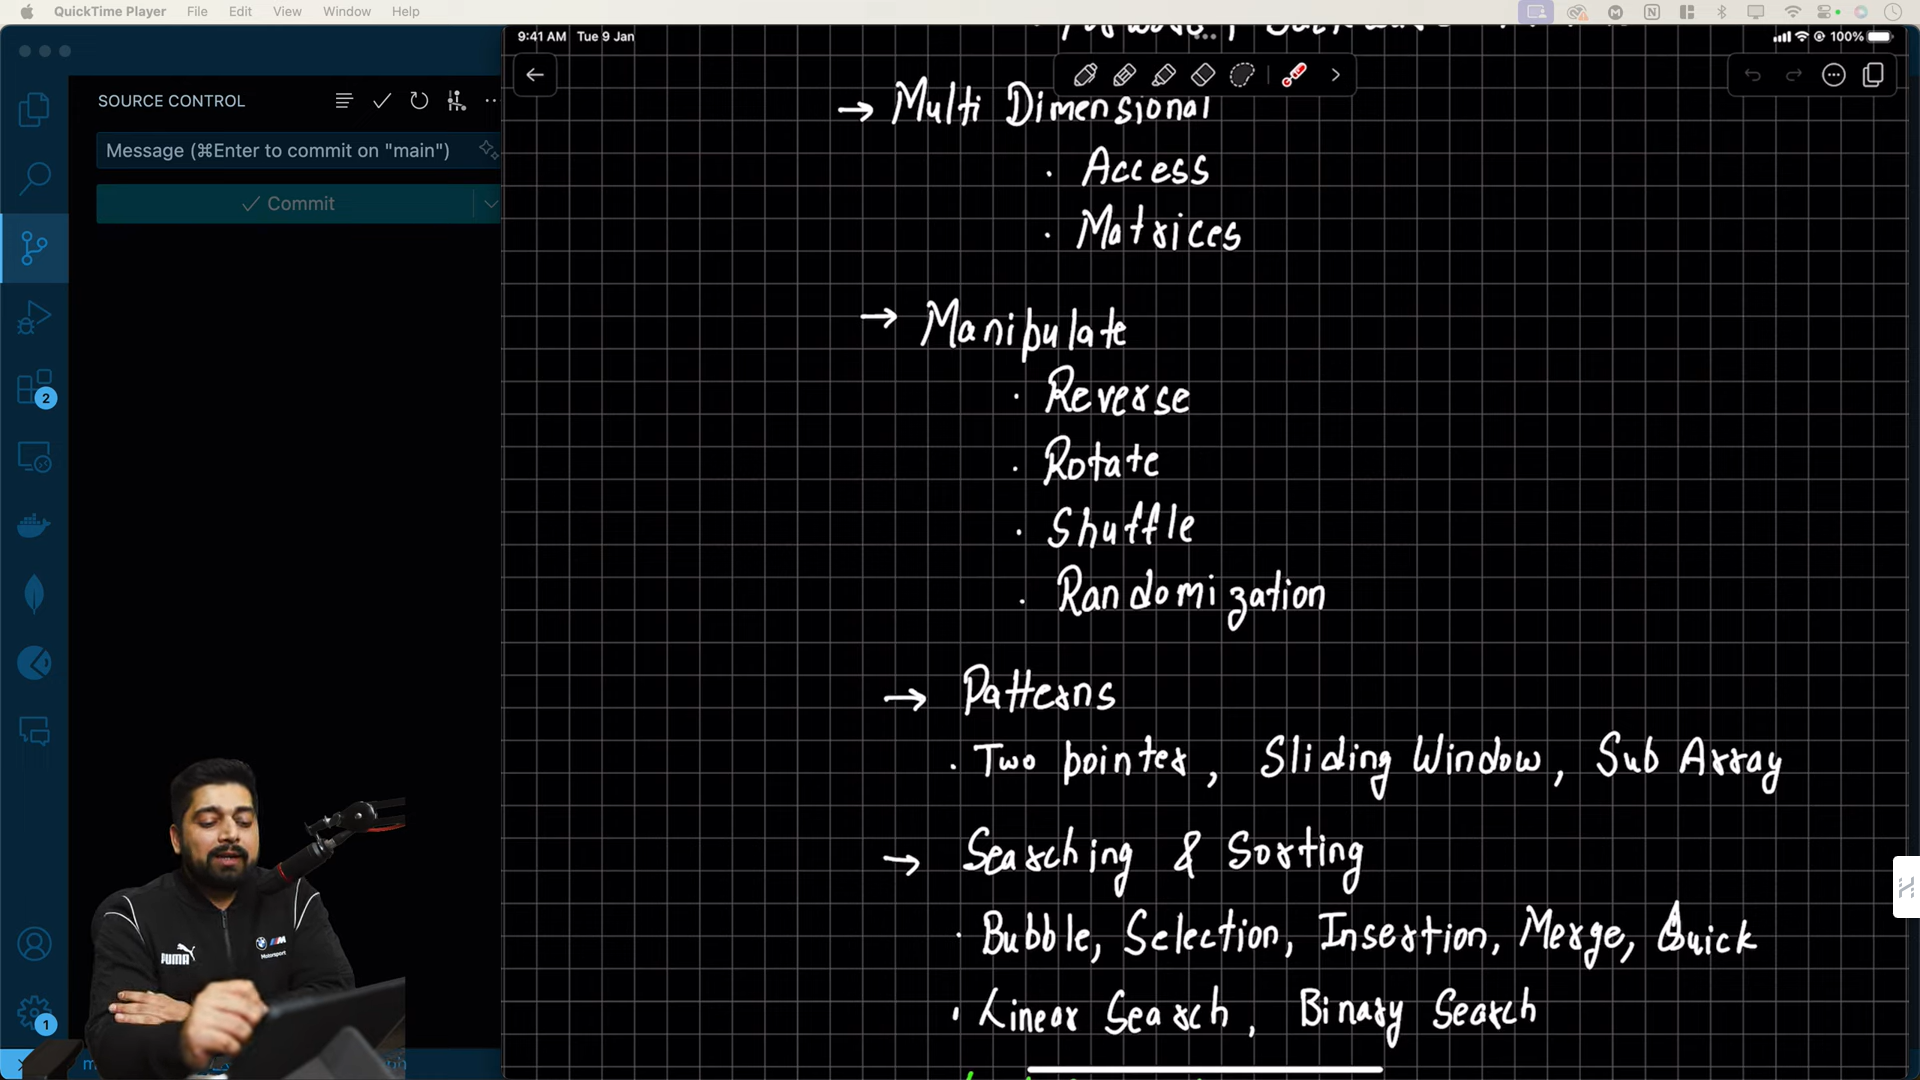 QuickTime Player File Edit View Window Help
9:41 AM Tue 9 Jan
100%
SOURCE CONTROL
Message (⌘Enter to commit on "main")
Commit
2
1
→ Multi Dimensional
· Access
· Matrices
→ Manipulate
· Reverse
· Rotate
· Shuffle
· Randomization
→ Patterns
· Two pointer, Sliding Window, Sub Array
→ Searching & Sorting
· Bubble, Selection, Insertion, Merge, Quick
· Linear Search, Binary Search
PUMA
M
Motorsport